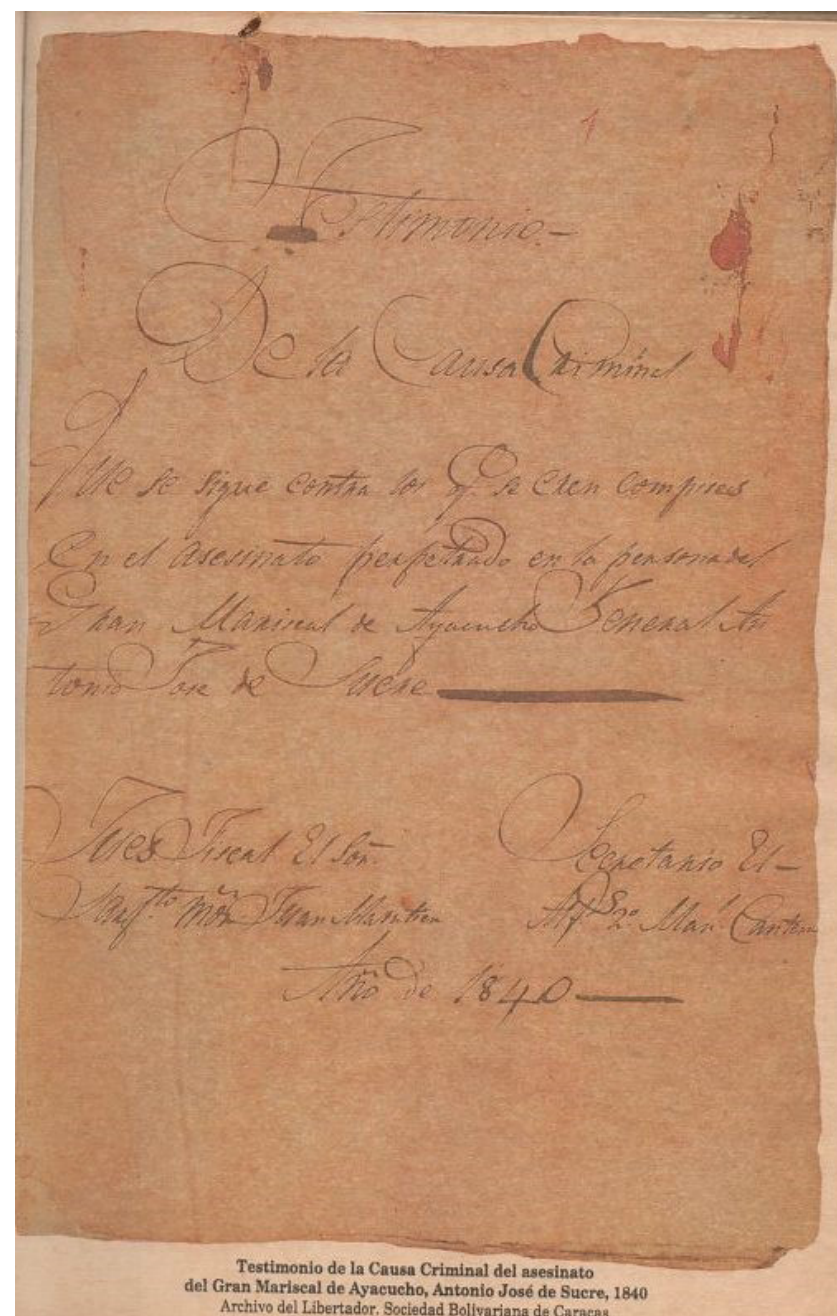 1
Testimonio.—
De la Causa Criminal
Que se sigue contra los q.e se creen complices
En el Asesinato perpetrado en la persona del
Gran Mariscal de Ayacucho General An
tonio Jose de Sucre
Jues Fiscal El Sor.
Sarjto Mor Juan
Secretario El—
Alfs 2o Manl
Año de 1840
Testimonio de la Causa Criminal del asesinato
del Gran Mariscal de Ayacucho, Antonio José de Sucre, 1840
Archivo del Libertador. Sociedad Bolivariana de Caracas